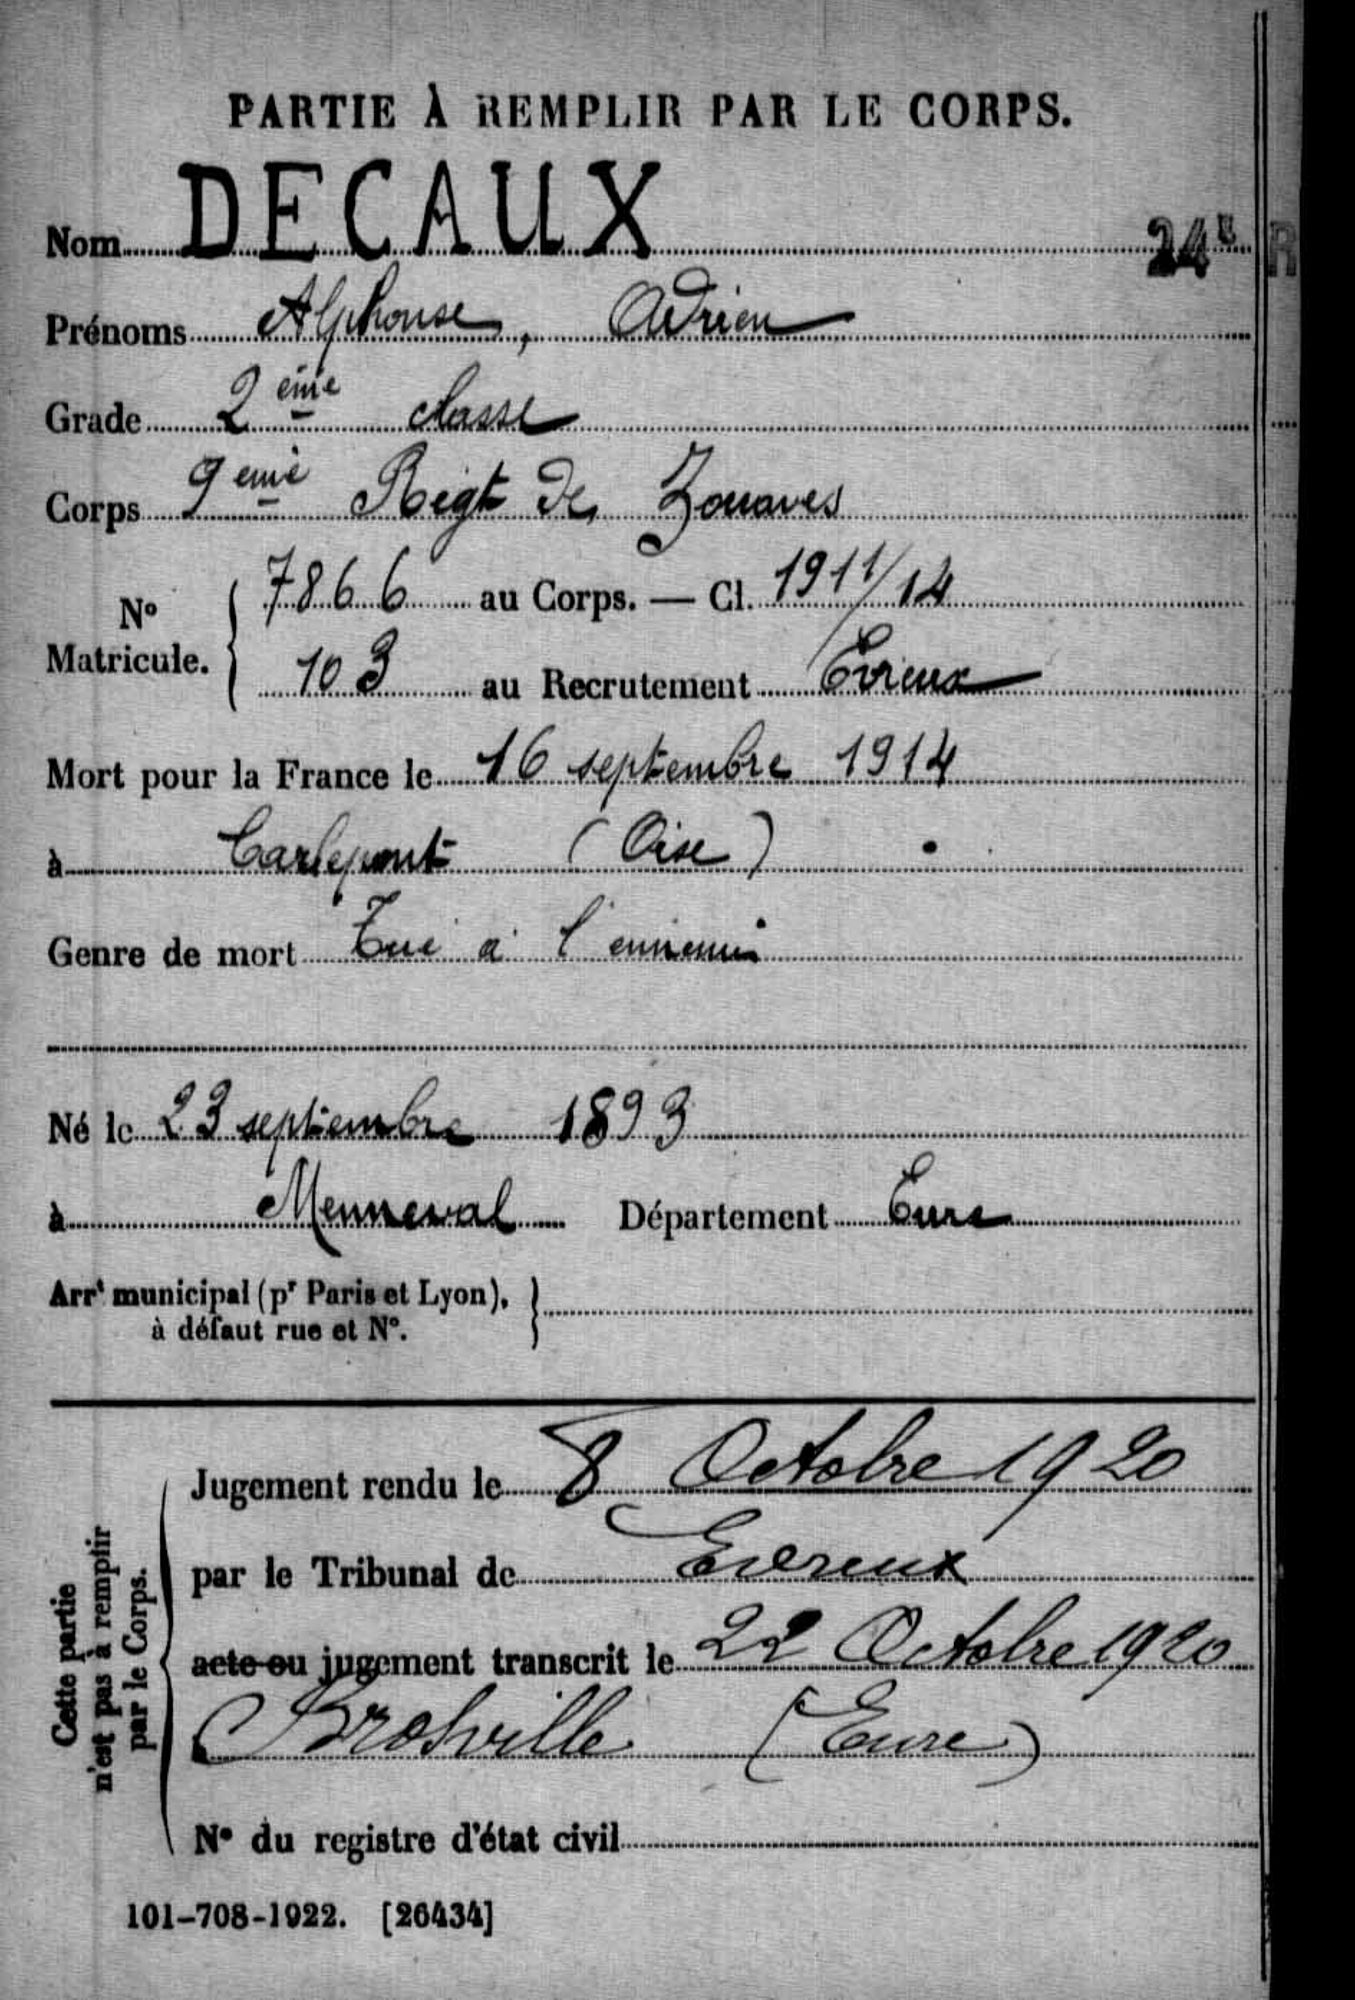 PARTIE À REMPLIR PAR LE CORPS.
Nom DECAUX 24e R
Prénoms Alphonse, Adrien
Grade 2ème classe
Corps 9eme Régt de Zouaves
No Matricule. { 7866 au Corps. — Cl. 1911/14
103 au Recrutement Evreux
Mort pour la France le 16 septembre 1914
à Carlepont (Oise)
Genre de mort Tué à l'ennemi
Né le 23 septembre 1893
à Menneval Département Eure
Arrt municipal (pr Paris et Lyon), }
à défaut rue et N°.
Cette partie
n'est pas à remplir
par le Corps.
Jugement rendu le 8 Octobre 1920
par le Tribunal de Evreux
acte ou jugement transcrit le 22 Octobre 1920
à Brosville (Eure)
N° du registre d'état civil
101-708-1922. [26434]